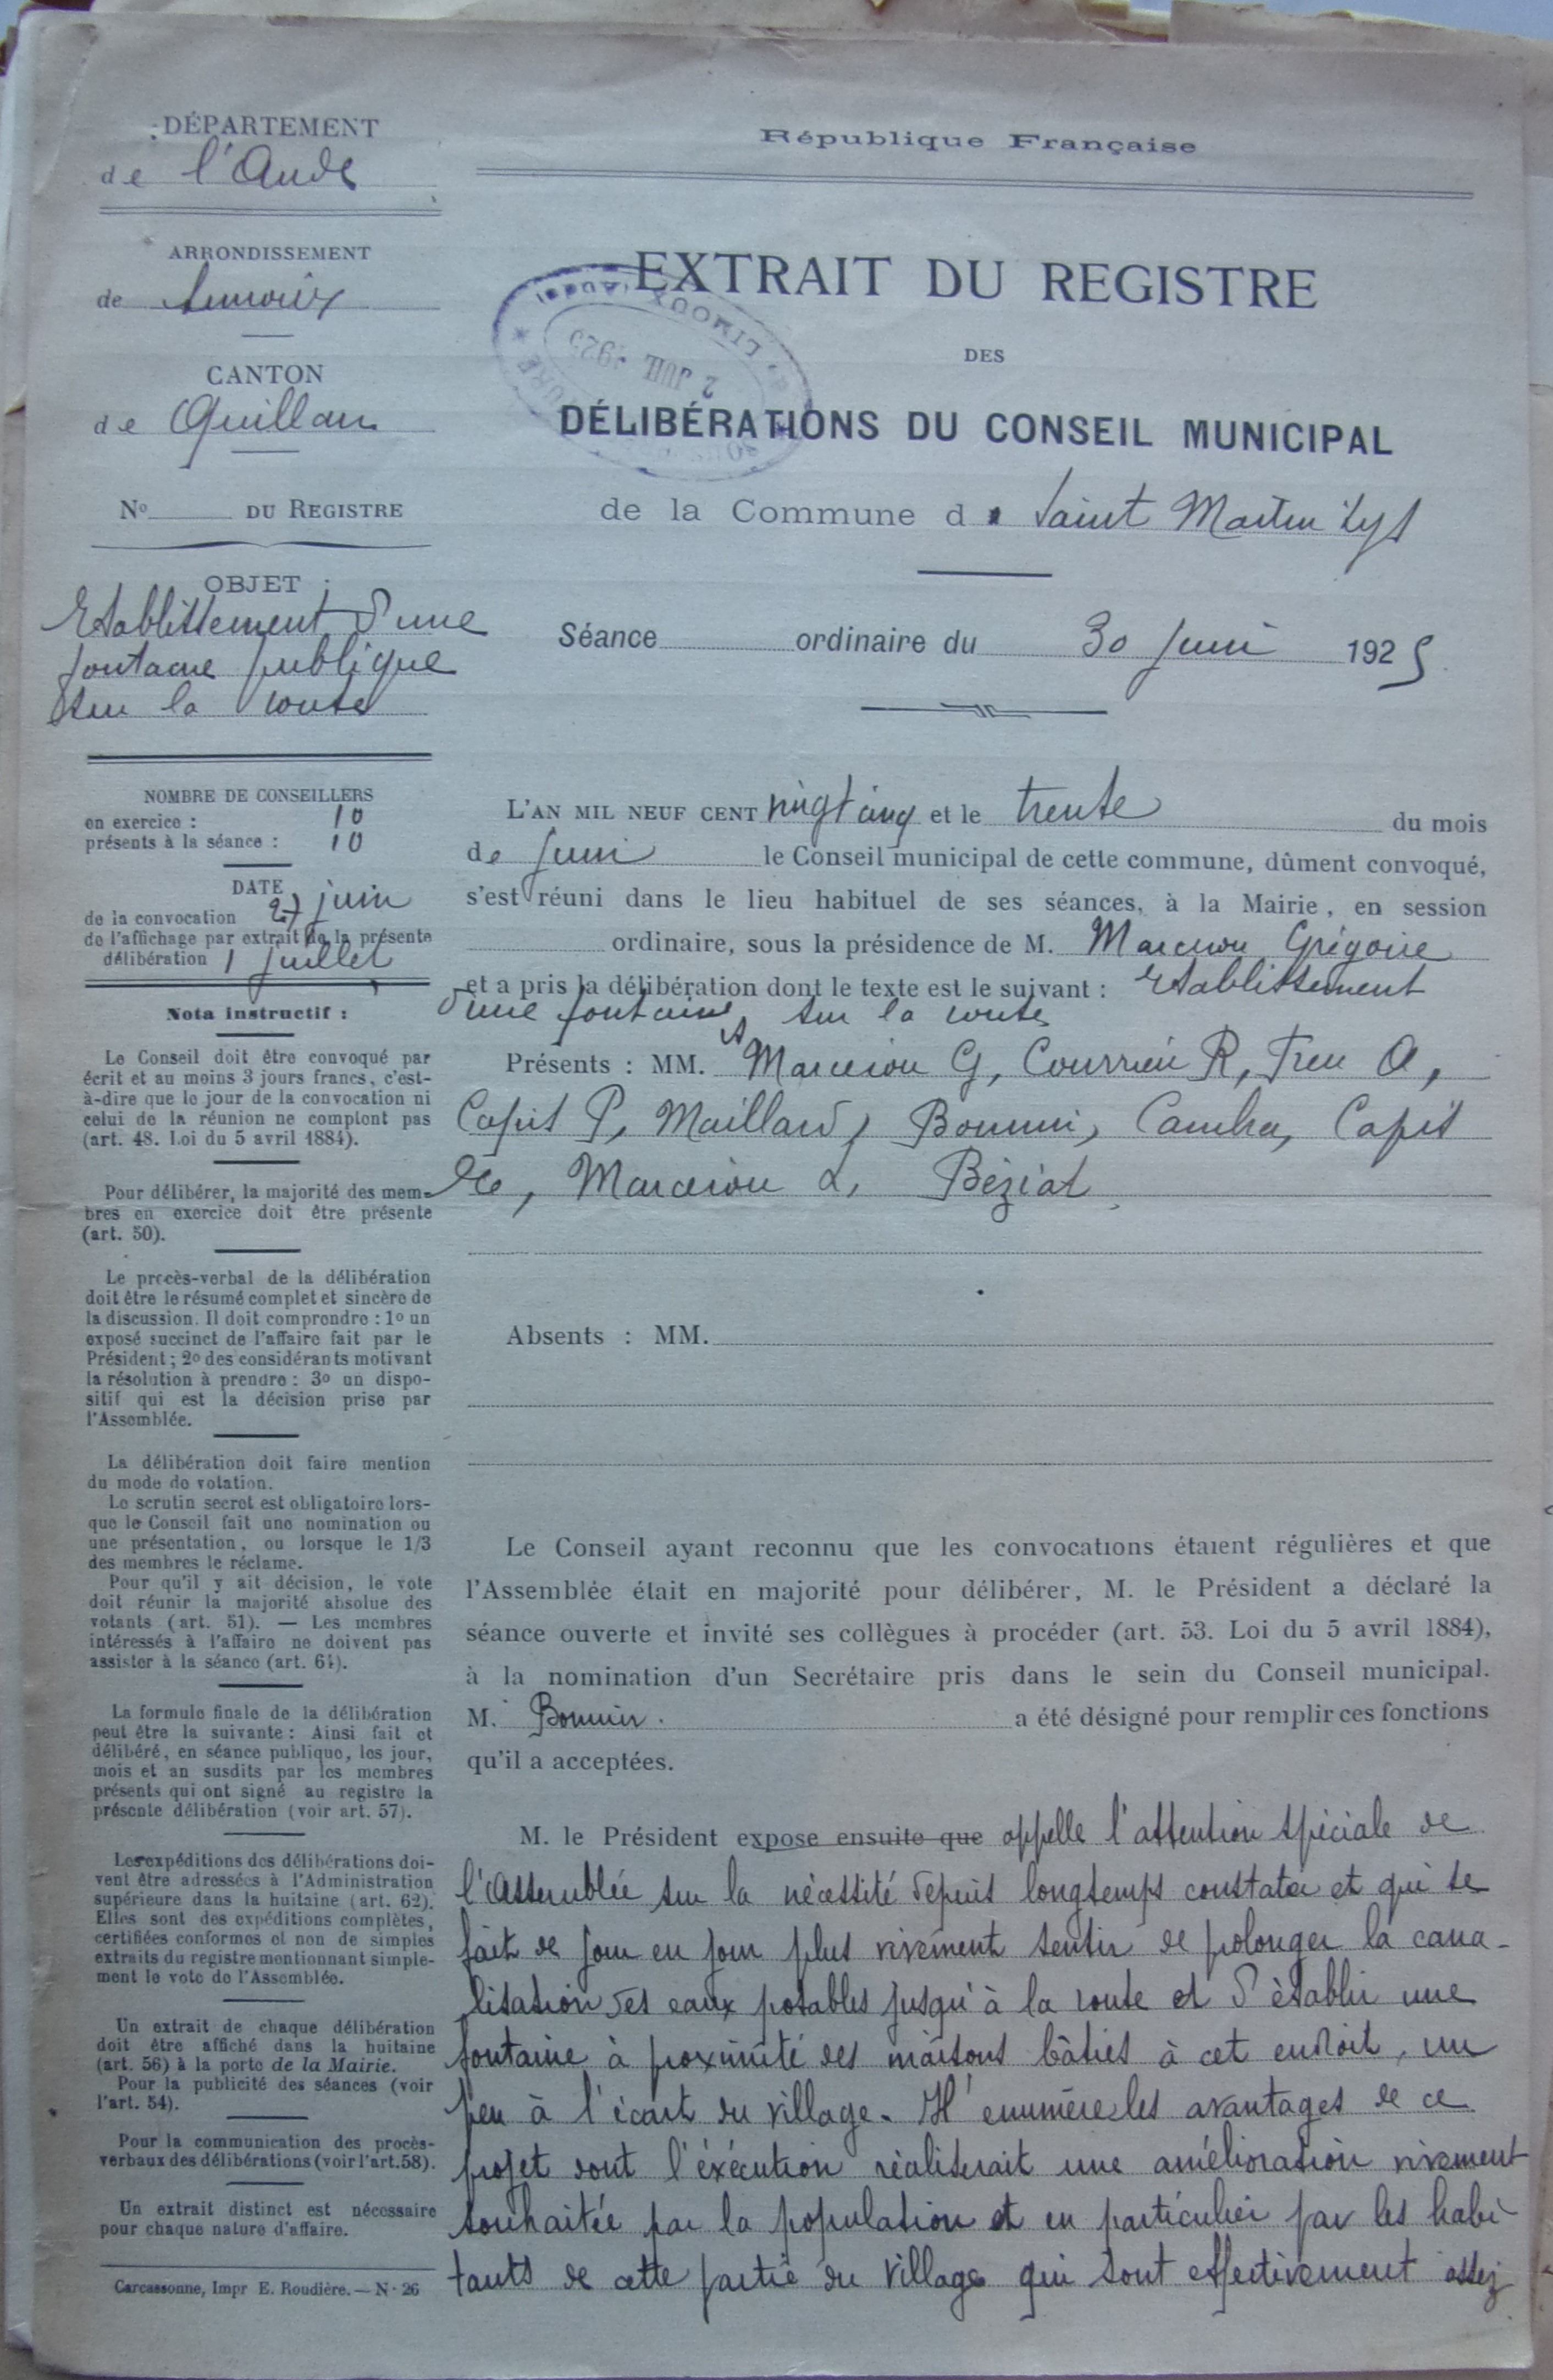 DÉPARTEMENT
de l'Aude
ARRONDISSEMENT
de Limoux
CANTON
de Quillan
No DU REGISTRE
OBJET :
Etablissement d'une
fontaine publique
sur la route
NOMBRE DE CONSEILLERS
en exercice : 10
présents à la séance : 10
DATE
de la convocation 27 juin
de l'affichage par extrait de la présente
délibération 1 juillet
Nota instructif :
Le Conseil doit être convoqué par
écrit et au moins 3 jours francs, c'est-
à-dire que le jour de la convocation ni
celui de la réunion ne comptent pas
(art. 48. Loi du 5 avril 1884).
Pour délibérer, la majorité des mem-
bres en exercice doit être présente
(art. 50).
Le procès-verbal de la délibération
doit être le résumé complet et sincère de
la discussion. Il doit comprendre : 1o un
exposé succinct de l'affaire fait par le
Président ; 2o des considérants motivant
la résolution à prendre : 3o un dispo-
sitif qui est la décision prise par
l'Assemblée.
La délibération doit faire mention
du mode de votation.
Le scrutin secret est obligatoire lors-
que le Conseil fait une nomination ou
une présentation, ou lorsque le 1/3
des membres le réclame.
Pour qu'il y ait décision, le vote
doit réunir la majorité absolue des
votants (art. 51). — Les membres
intéressés à l'affaire ne doivent pas
assister à la séance (art. 64).
La formule finale de la délibération
peut être la suivante : Ainsi fait et
délibéré, en séance publique, les jour,
mois et an susdits par les membres
présents qui ont signé au registre la
présente délibération (voir art. 57).
Les expéditions des délibérations doi-
vent être adressées à l'Administration
supérieure dans la huitaine (art. 62).
Elles sont des expéditions complètes,
certifiées conformes et non de simples
extraits du registre mentionnant simple-
ment le vote de l'Assemblée.
Un extrait de chaque délibération
doit être affiché dans la huitaine
(art. 56) à la porte de la Mairie.
Pour la publicité des séances (voir
l'art. 54).
Pour la communication des procès-
verbaux des délibérations (voir l'art. 58).
Un extrait distinct est nécessaire
pour chaque nature d'affaire.
Carcassonne, Impr E. Roudière. — N· 26
République Française
EXTRAIT DU REGISTRE
DES
LIMOUX (AUDE)
2 JUIL 1925
DÉLIBÉRATIONS DU CONSEIL MUNICIPAL
de la Commune d Saint Martin Lys
Séance ordinaire du 30 juin 1925
L'AN MIL NEUF CENT vingt cinq et le trente du mois
de juin le Conseil municipal de cette commune, dûment convoqué,
s'est réuni dans le lieu habituel de ses séances, à la Mairie, en session
ordinaire, sous la présidence de M. Marcerou Grégoire
et a pris la délibération dont le texte est le suivant : Etablissement
d'une fontaine sur la route
Présents : MM. Marcerou G, Courrieu R, Treu A,
Capit P, Maillard, Bonnin, Capit
Marcerou L, Béziat
Absents : MM.
Le Conseil ayant reconnu que les convocations étaient régulières et que
l'Assemblée était en majorité pour délibérer, M. le Président a déclaré la
séance ouverte et invité ses collègues à procéder (art. 53. Loi du 5 avril 1884),
à la nomination d'un Secrétaire pris dans le sein du Conseil municipal.
M. Bonnin. a été désigné pour remplir ces fonctions
qu'il a acceptées.
M. le Président expose ensuite que appelle l'attention spéciale de
l'Assemblée sur la nécessité depuis longtemps constatée et qui se
fait de jour en jour plus vivement sentir de prolonger la cana-
lisation des eaux potables jusqu'à la route et d'établir une
fontaine à proximité des maisons bâties à cet endroit, un
peu à l'écart du village. Il énumère les avantages de ce
projet dont l'éxécution réaliserait une amélioration vivement
souhaitée par la population et en particulier par les habi-
tants de cette partie du village qui sont effectivement assez